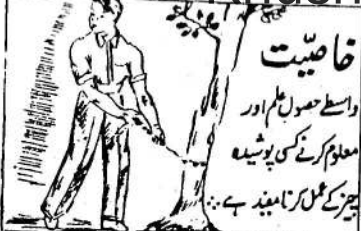 خاصیّت
واسطے حصول علم اور
معلوم کرنے کسی پوشیدہ
چیز کے عمل کرنا مفید ہے ∴